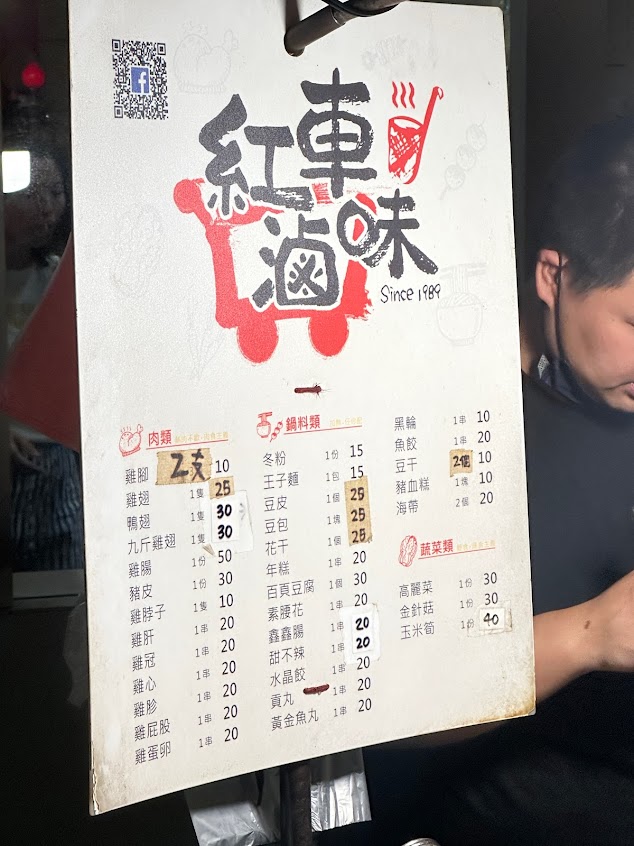 紅車
滷味
Since 1989
肉類
雞腳 2支 10
雞翅 1隻 25
鴨翅 1隻 30
九斤雞翅 1隻 30
雞腸 1份 50
豬皮 1份 30
雞脖子 1隻 10
雞肝 1串 20
雞冠 1串 20
雞心 1串 20
雞胗 1串 20
雞屁股 1串 20
雞蛋卵 1串 20
鍋料類
冬粉 1份 15
王子麵 1包 15
豆皮 1個 25
豆包 1塊 25
花干 1個 25
年糕 1串 20
百頁豆腐 1個 30
素腰花 1串 20
鑫鑫腸 1串 20
甜不辣 1串 20
水晶餃 1串 20
貢丸 1串 20
黃金魚丸 1串 20
黑輪 1串 10
魚餃 1串 20
豆干 2個 10
豬血糕 1塊 10
海帶 2個 20
蔬菜類
高麗菜 1份 30
金針菇 1份 30
玉米筍 1份 40